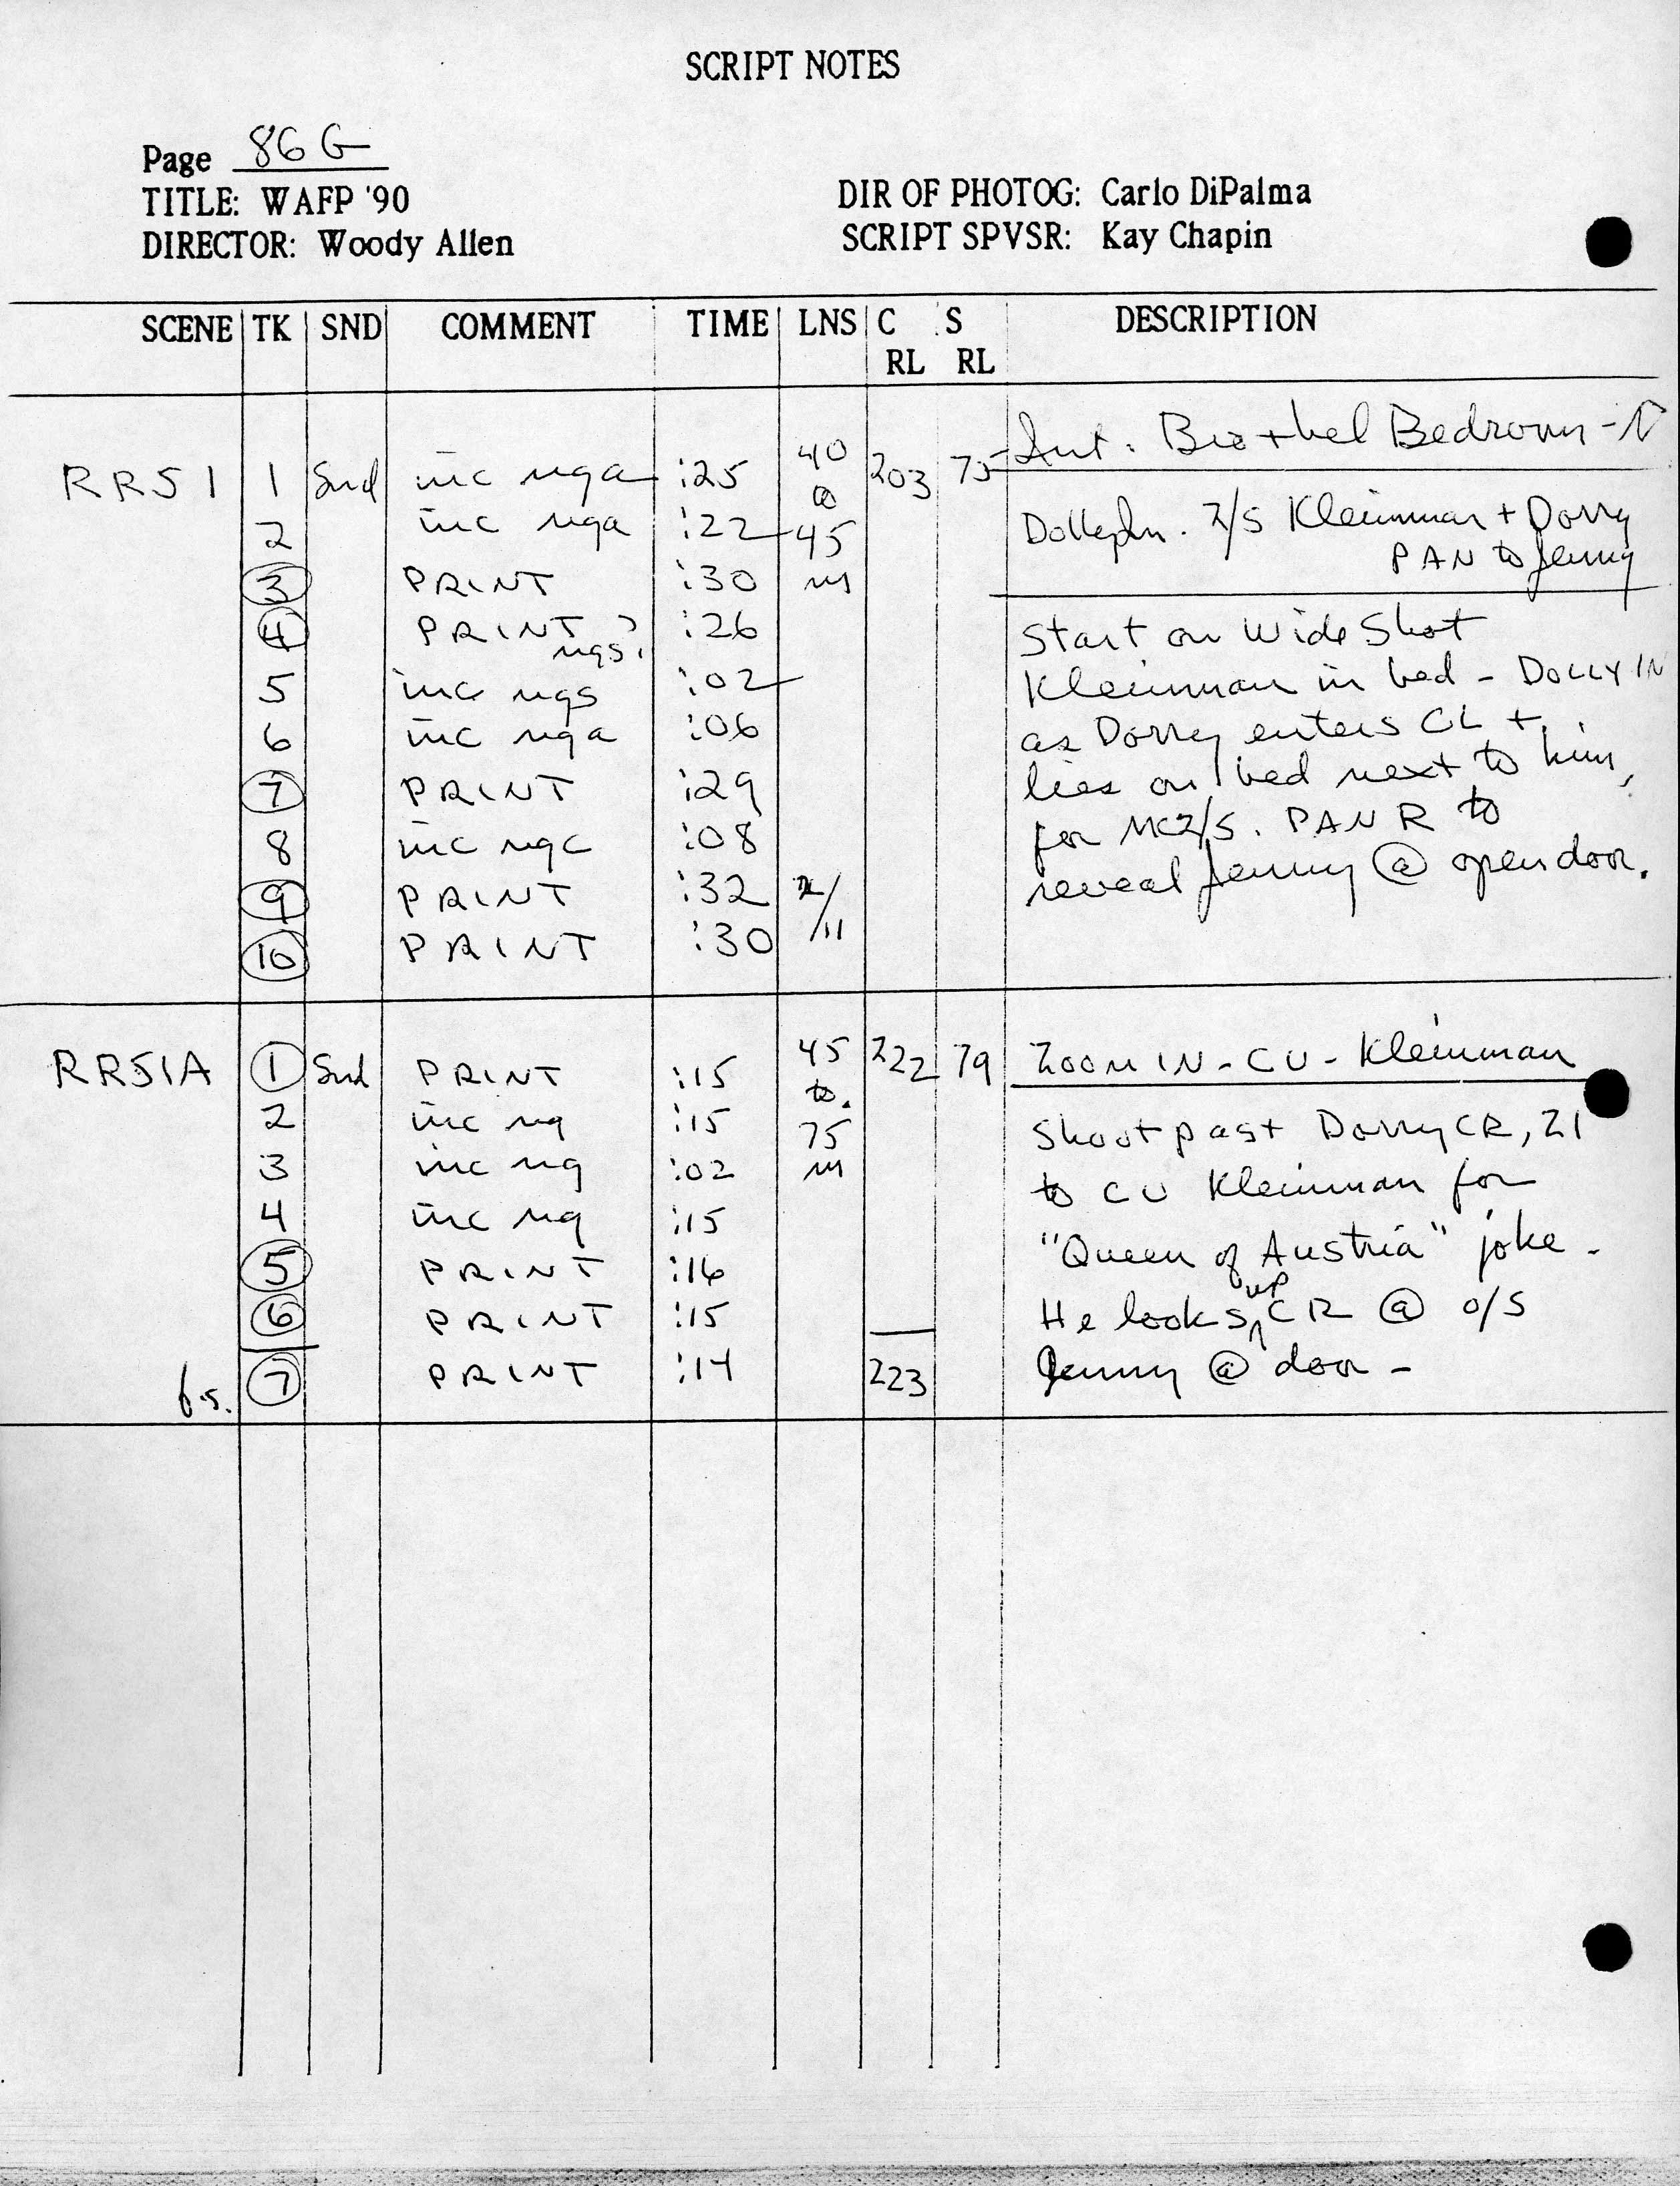 SCRIPT NOTES
Page 86 G
TITLE: WAFP '90
DIRECTOR: Woody Allen
DIR OF PHOTOG: Carlo DiPalma
SCRIPT SPVSR: Kay Chapin
SCENE TK SND COMMENT TIME LNS C RL S RL DESCRIPTION
Int. Brothel Bedroom - N
RR51 1 Snd inc nga :25 40 203 75
@
2 inc nga :22 45 Dolly In. 2/S Kleinman + Dorry
PAN to Jenny
3 PRINT :30 m
4 PRINT ngs? :26 Start on Wide Shot
5 inc ngs :02 Kleinman in bed - DOLLY IN
6 inc nga :06 as Dorry enters CL +
7 PRINT :29 lies on bed next to him,
8 inc ngc :08 for MC2/S. PAN R to
9 PRINT :32 reveal Jenny @ open door.
10 PRINT :30 /11
RR51A 1 Snd PRINT :15 45 222 79 ZOOM IN - CU - Kleinman
to
2 inc ng :15 75 Shoot past Dorry CR, ZI
3 inc ng :02 m to CU Kleinman for
4 inc ng :15 "Queen of Austria" joke.
5 PRINT :16
6 PRINT :15 He looks up CR @ o/s
7 PRINT :14 223 Jenny @ door -